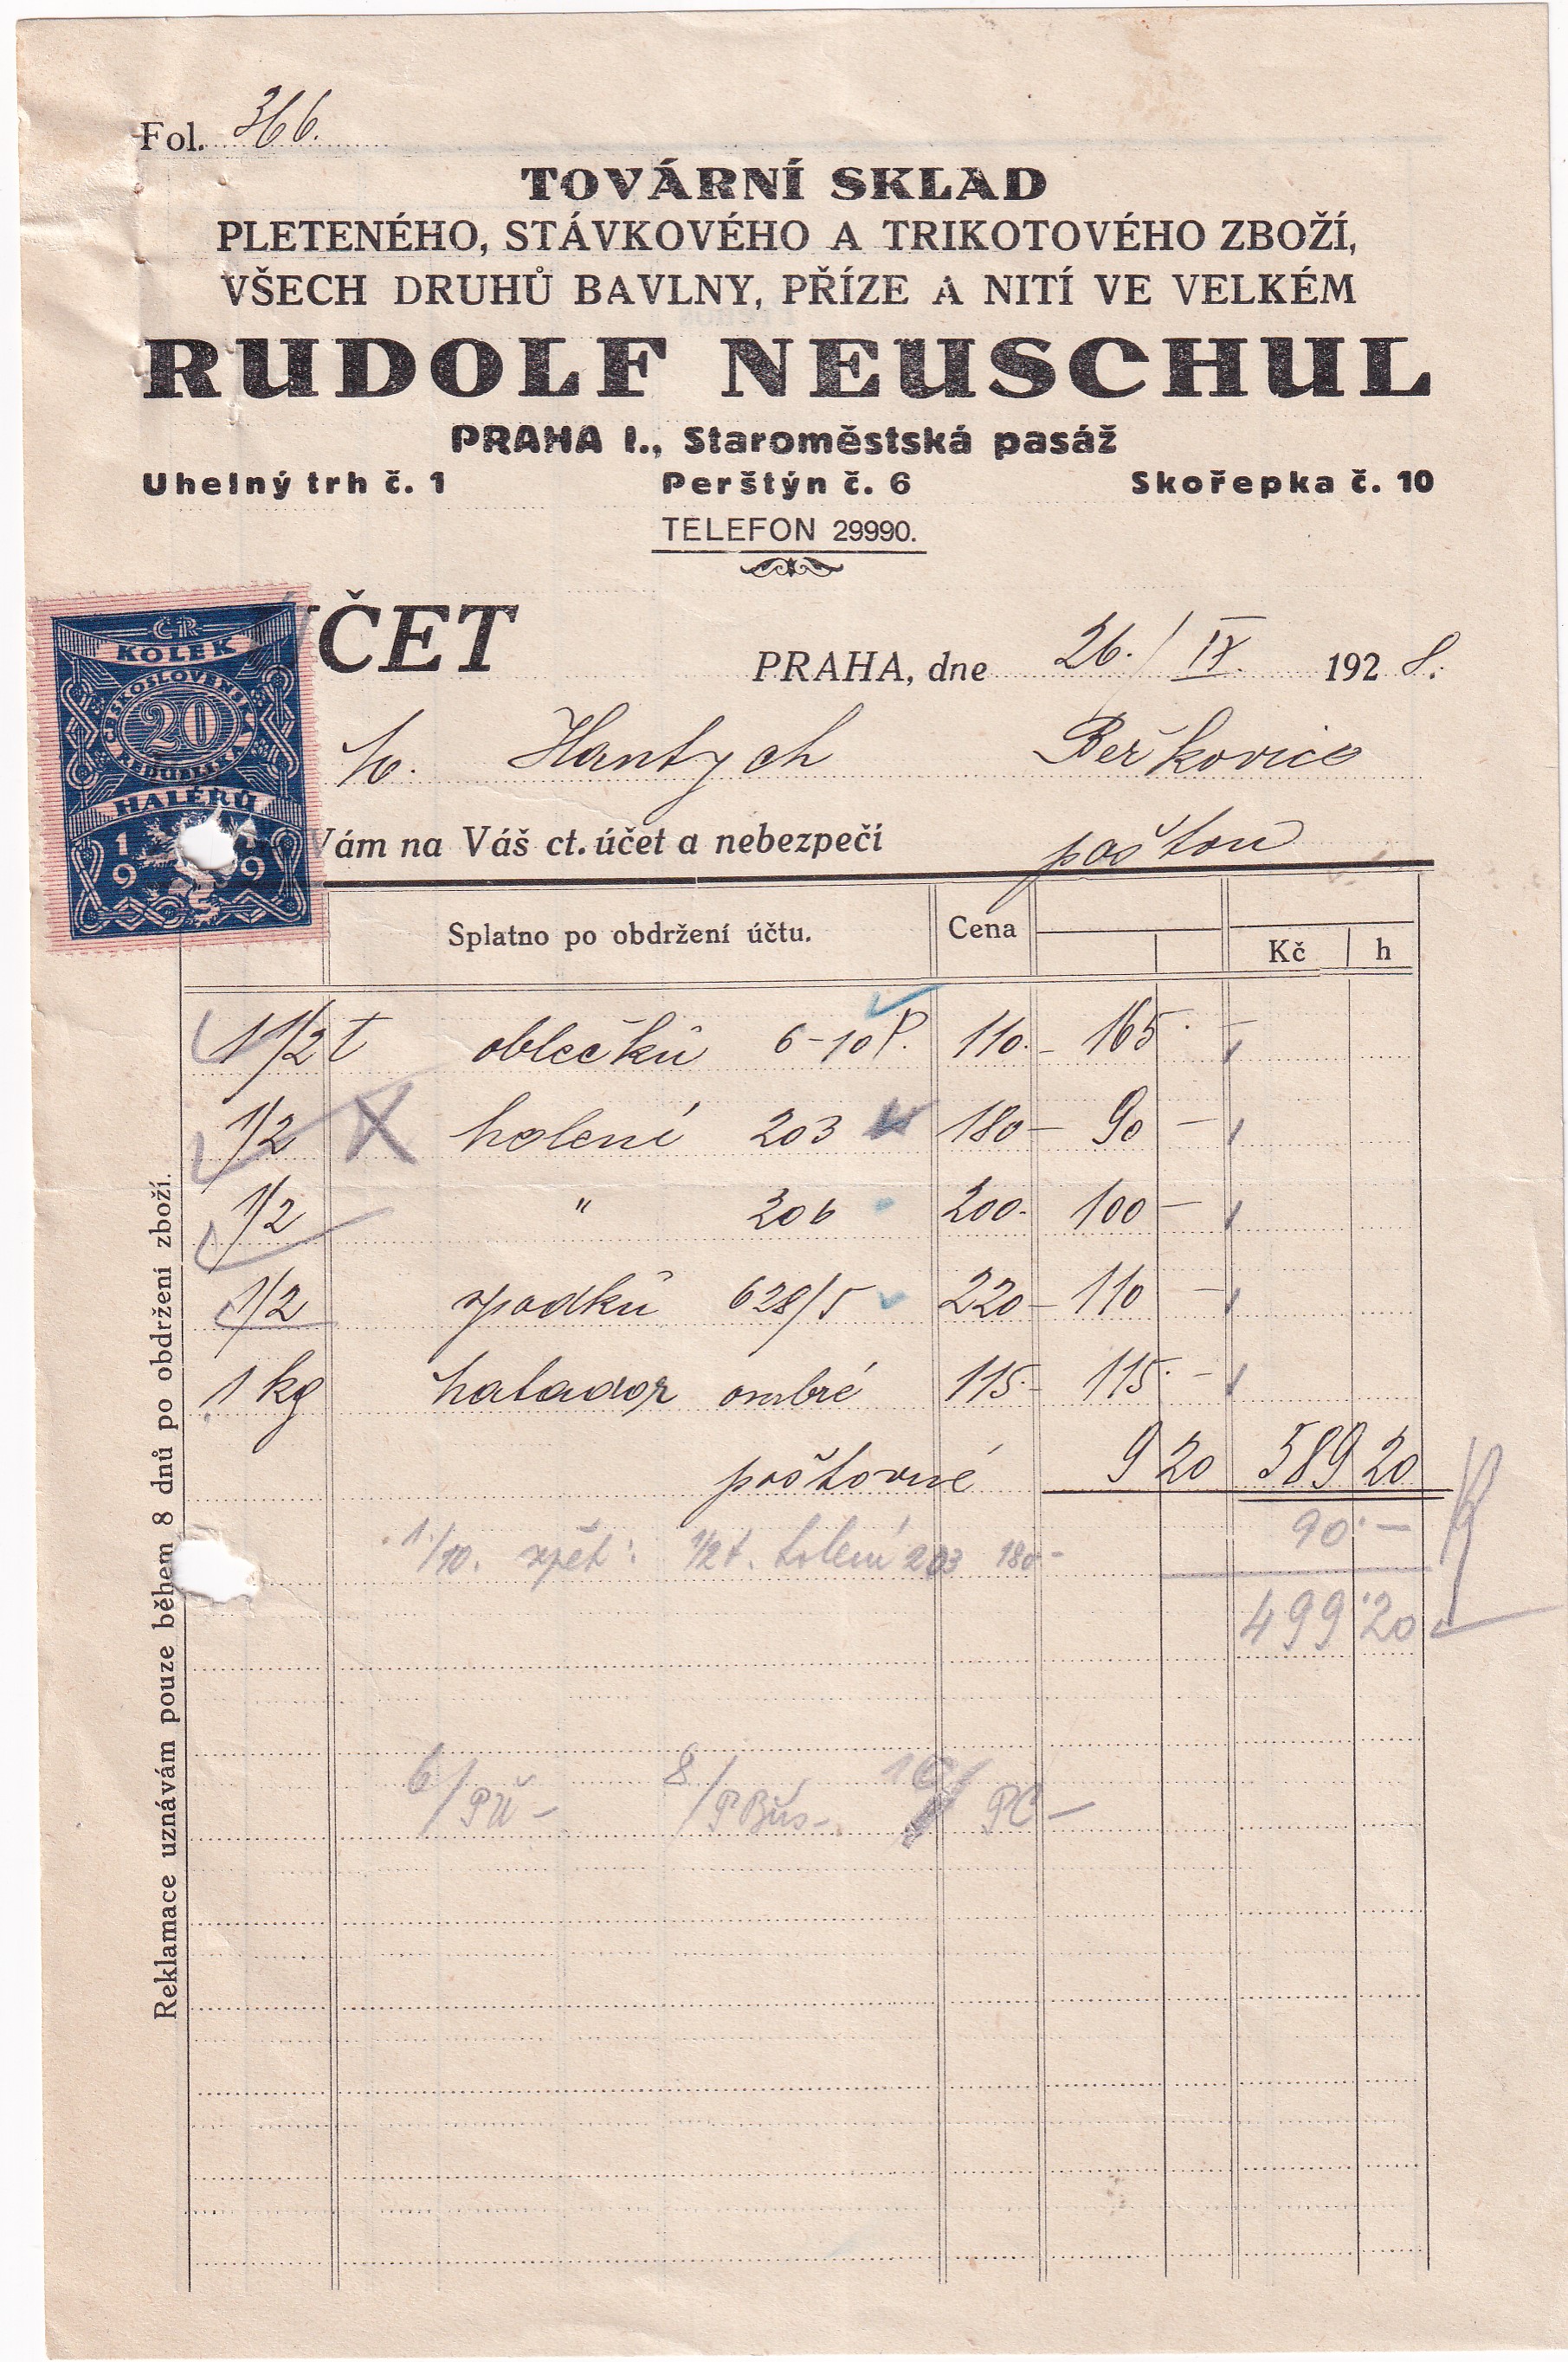 Fol. 366.
TOVÁRNÍ SKLAD
PLETENÉHO, STÁVKOVÉHO A TRIKOTOVÉHO ZBOŽÍ,
VŠECH DRUHŮ BAVLNY, PŘÍZE A NITÍ VE VELKÉM
RUDOLF NEUSCHUL
PRAHA I., Staroměstská pasáž
Uhelný trh č. 1 Perštýn č. 6 Skořepka č. 10
TELEFON 29990.
ČSR
KOLEK
ČESKOSLOVENSKÁ
20
REPUBLIKA
HALÉŘŮ
1 9
9 9
ČET
PRAHA, dne 26./IX. 1928.
Hantych Beřkovice
Vám na Váš ct. účet a nebezpečí poštou
Splatno po obdržení účtu. Cena Kč h
1 1/2 t oblečků 6-10 P. 110.- 165.-
1/2 holení 203 180- 90-
1/2 " 206 200.- 100-
1/2 spodků 628/5 220- 110-
1 kg halador ombré 115.- 115.-
poštovné 9 20 589 20
1./10. zpět: 1/2 t. holení 203 180- 90.-
499.20
6/PÚ- 8/P 10/ PC-
Reklamace uznávám pouze během 8 dnů po obdržení zboží.